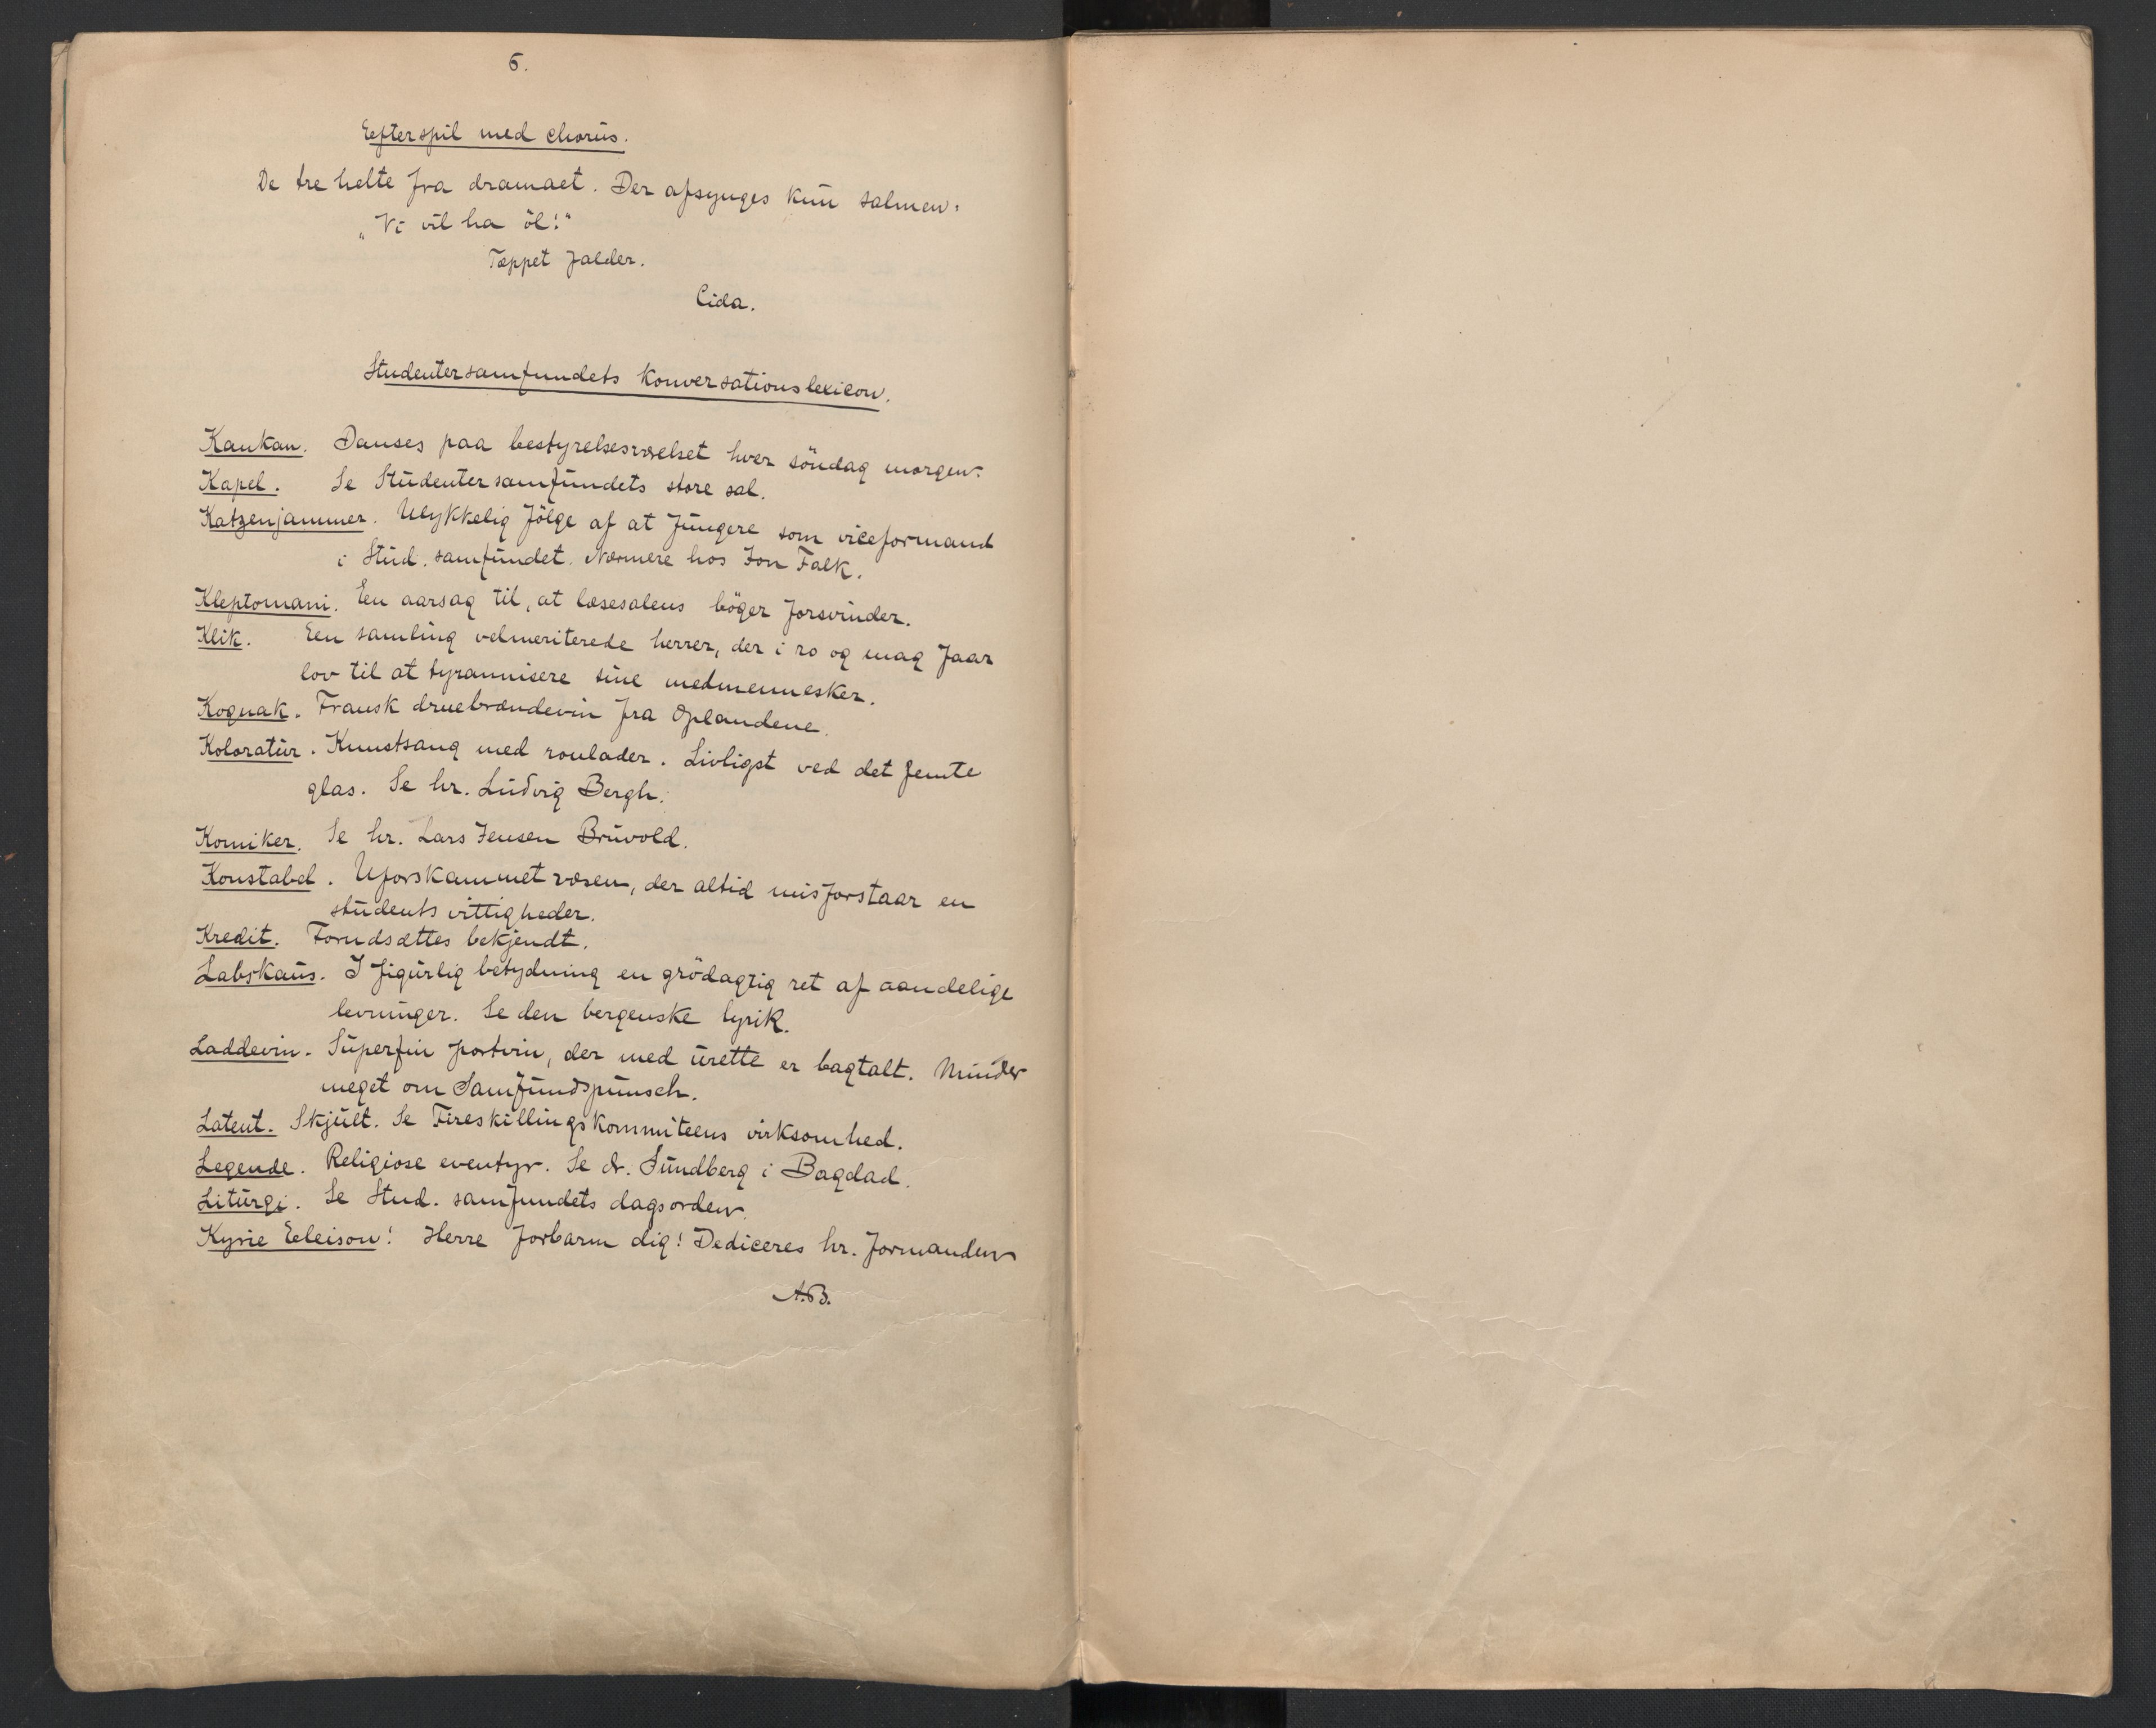 6.
Efterspil med chorus.
De tre helte fra dramaet. Der afsynges kun salmen:
„Vi vil ha öl!"
Tæppet falder.
Cida.
Studentersamfundets Konversationslexicon.
Kankan. Danses paa bestyrelsesværelset hver söndag morgen.
Kapel. Se Studentersamfundets store sal.
Katzenjammer. Ulykkelig fölge af at fungere som viceformand
i Stud. samfundet. Nærmere hos Jon Falk.
Kleptomani. En aarsag til, at læsesalens böger forsvinder.
Klik. En samling velmeriterede herrer, der i ro og mag faar
lov til at tyrannisere sine medmennesker.
Kognak. Fransk druebrændevin fra Oplandene.
Koloratur. Kunstsang med roulader. Livligst ved det femte
glas. Se hr. Ludvig Bergh.
Komiker. Se hr. Lars Jensen Bruvold.
Konstabel. Uforskammet væsen, der altid misforstaar en
students vittigheder.
Kredit. Forudsættes bekjendt.
Labskaus. I figurlig betydning en grödagtig ret af aandelige
levninger. Se den bergenske lyrik.
Laddevin. Superfin portvin, der med urette er bagtalt. Minder
meget om Samfundspunsch.
Latent. Skjult. Se Fireskillingskommiteens virksomhed.
Legende. Religiose eventyr. Se dr. Sundberg i Bagdad.
Liturgi. Se Stud. samfundets dagsorden.
Kyrie Eleison! Herre forbarm dig! Dediceres hr. formanden
A.B.